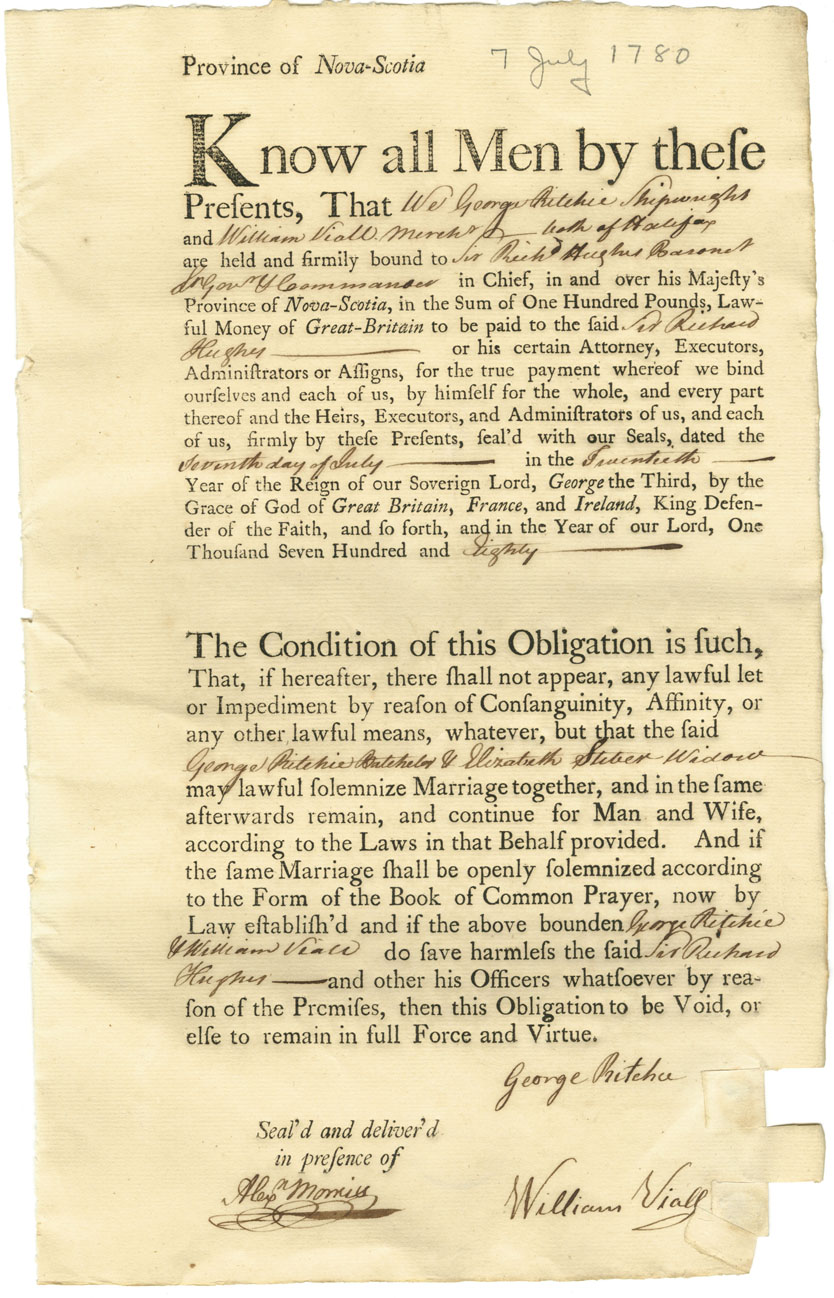 Province of Nova-Scotia 7 July 1780
Know all Men by theſe
Preſents, That We George Ritchie Shipwright
and William Viall Mercht both of Halifax
are held and firmily bound to Sir Richd Hughes Baronet
Lt Govr & Commander in Chief, in and over his Majeſty's
Province of Nova-Scotia, in the Sum of One Hundred Pounds, Law-
ful Money of Great-Britain to be paid to the ſaid Sir Richard
Hughes or his certain Attorney, Executors,
Adminiſtrators or Aſſigns, for the true payment whereof we bind
ourſelves and each of us, by himſelf for the whole, and every part
thereof and the Heirs, Executors, and Adminiſtrators of us, and each
of us, firmly by theſe Preſents, ſeal'd with our Seals, dated the
Seventh day of July in the Twentieth
Year of the Reign of our Soverign Lord, George the Third, by the
Grace of God of Great Britain, France, and Ireland, King Defen-
der of the Faith, and ſo forth, and in the Year of our Lord, One
Thouſand Seven Hundred and Eighty
The Condition of this Obligation is ſuch,
That, if hereafter, there ſhall not appear, any lawful let
or Impediment by reaſon of Conſanguinity, Affinity, or
any other lawful means, whatever, but that the ſaid
George Ritchie Batchelor & Elizabeth Widow
may lawful ſolemnize Marriage together, and in the ſame
afterwards remain, and continue for Man and Wife,
according to the Laws in that Behalf provided. And if
the ſame Marriage ſhall be openly ſolemnized according
to the Form of the Book of Common Prayer, now by
Law eſtabliſh'd and if the above bounden George Ritchie
& William Viall do ſave harmleſs the ſaid Sir Richard
Hughes and other his Officers whatſoever by rea-
ſon of the Premiſes, then this Obligation to be Void, or
elſe to remain in full Force and Virtue.
George Ritchie
Seal'd and deliver'd
in preſence of
Alexr Morriss
William Viall